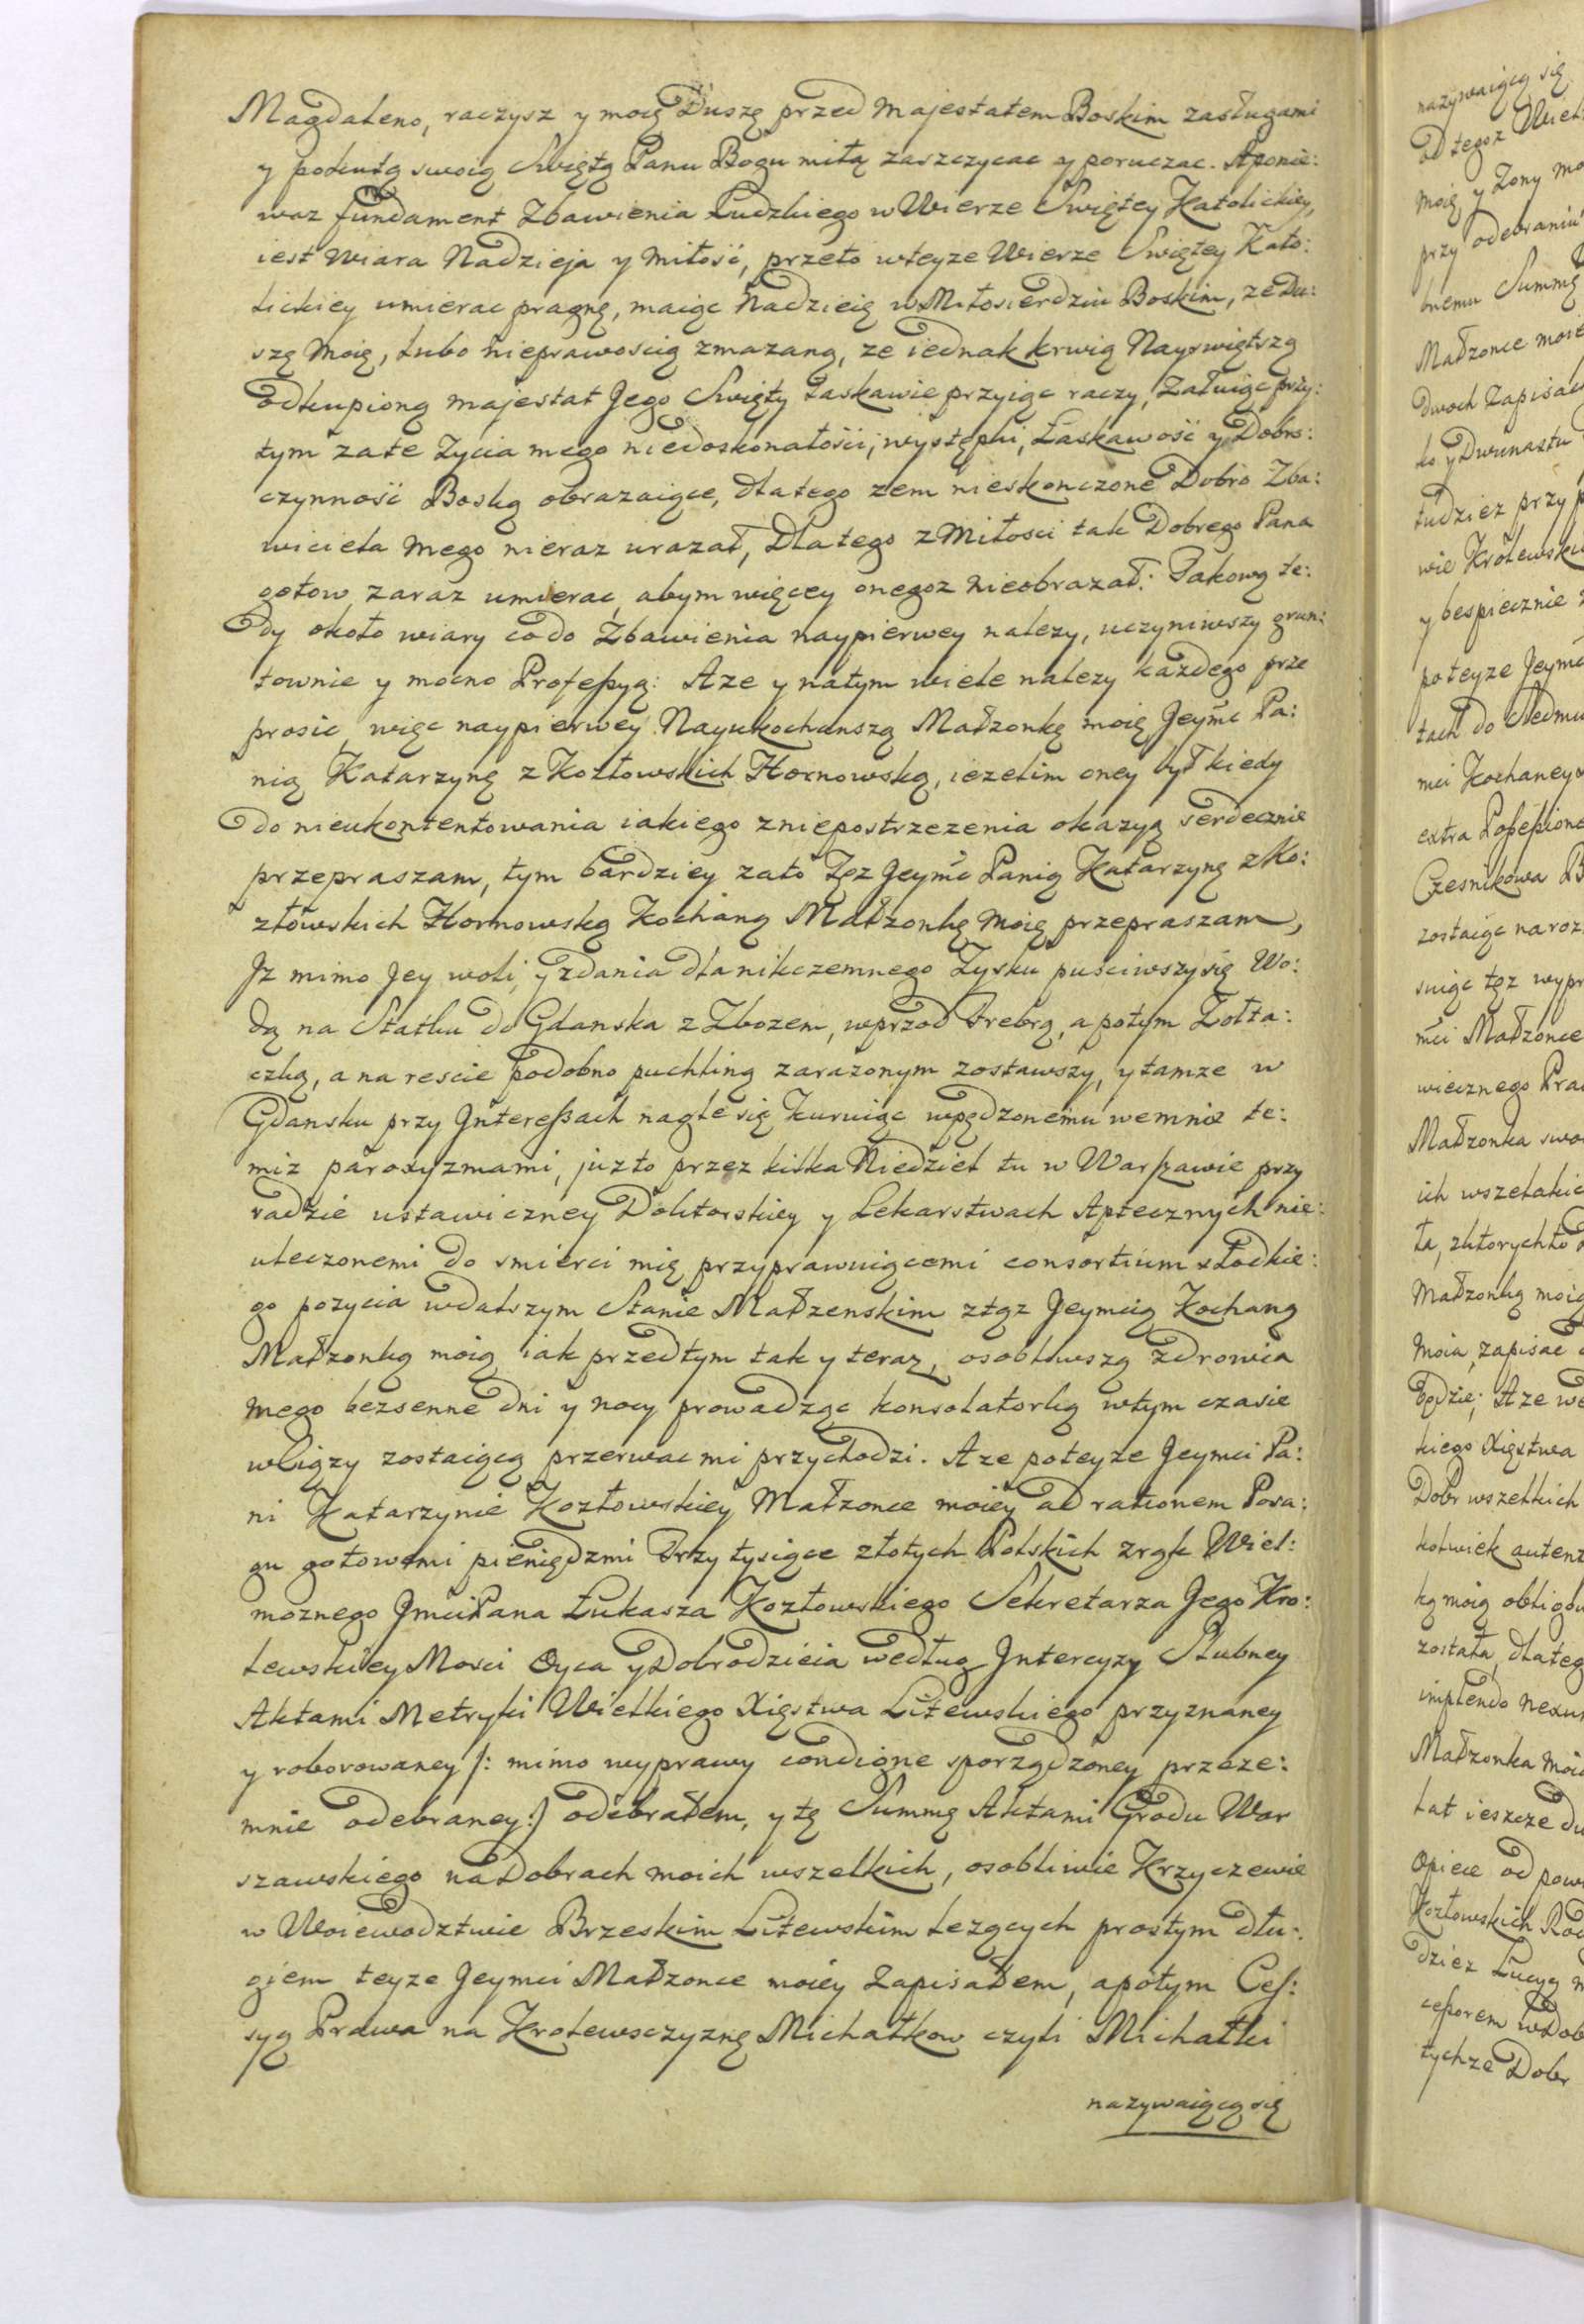 Magdaleno, raczysz y moię Duszę przed Majestatem Boskim zasługami
y pokutą swoią Swiętą Panu Bogu miłą zaszczycac y poruczac. Aponie:
waz fundament Zbawienia Ludzkiego w Wierze Swiętey Katolickiey,
iest Wiara Nadzieja y Miłość, przeto wteyze Wierze Swiętey Kato:
lickiey umierac pragnę, maiąc Nadzieię w Miłosierdziu Boskim, ze Du:
szę Moię, lubo nieprawoscią zmazaną, ze iednak krwią Nayswiętszą
odkupioną majestat Jego Swięty łaskawie przyiąc raczy, Załuiąc przy:
tym zate Zycia mego niedoskonałości, występki, Łaskawość y Dobro:
czynność Boską obrazaiące, dlatego zem nieskonczone Dobro Zba:
wiciela Mego nieraz urazał, Dlatego z Miłosci tak Dobrego Pana
gotow zaraz umierac, abym więcey onegoz nieobrazał. Takową te:
dy około wiary co do Zbawienia naypierwey nalezy, uczyniwszy grun:
townie y mocno Professyą: Aze y natym wiele nalezy kazdego prze
prosic, więc naypierwey Nayukochanszą Małzonkę moię Jeymć Pa:
nią Katarzynę z Kozłowskich Hornowską, iezelim oney był kiedy
do nieukontentowania iakiego zniepostrzezenia okazyą serdecznie
przepraszam, tym bardziey zato Tęz Jeymć Panią Katarzynę z Ko:
złowskich Hornowską Kochaną Małzonkę Moię przepraszam,
Iz mimo Jey woli, y zdania dla nikczemnego Zysku puściwszy się Wo:
dą na Statku do Gdanska z Zbozem, wprzod Febrą, a potym Zołta:
czką, a na rescie podobno puchliną zarazonym zostawszy, y tamze w
Gdansku przy Interessach nagle się kuruiąc wpędzonemu wemnie te:
miz paroxyzmami, juz to przez kilka Niedziel tu w Warszawie przy
radzie ustawiczney Doktorskiey y Lekarstwach Aptecznych nie:
uleczonemi do smierci mię przyprawuiącemi consortium słodkie:
go pozycia wdalszym Stanie Małzenskim z tąz Jeymcią Kochaną
Małzonką moią iak przedtym tak y teraz, osobliwszą zdrowia
Mego bezsenne dni y nocy prowadząc konsolatorką wtym czasie
wCiązy zostaiącą przerwac mi przychodzi. Aze poteyze Jeymci Pa:
ni Katarzynie Kozłowskiey Małzonce moiey ad rationem Posa:
gu gotowemi pieniędzmi Trzy tysiące złotych Polskich z rąk Wiel:
moznego Jmci Pana Łukasza Kozłowskiego Sekretarza Jego Kro:
lewskiey Mosci Oyca y Dobrodzieia według Intercyzy Slubney
Aktami Metryki Wielkiego Xięstwa Litewskiego przyznaney
y roborowaney /: mimo wyprawy condigne sporządzoney przeze:
mnie odebraney:/ odebrałem, y tę Summę Aktami Grodu War
szawskiego na Dobrach moich wszelkich, osobliwie Krzyczewie
w Woiewodztwie Brzeskim Litewskim lezących prostym dłu:
giem teyze Jeymci Małzonce moiey Zapisałem, apotym Ces:
syą Prawa na Krolewsczyznę Michałkow czyli Michałki
nazywaiącą się
nazywaiącą się
od tegoz Wiel
moię y Zony mo
przy odebraniu
Summę
Małzonce moie
Dwoch Zapisac
ko y Dwunastu
tudziez przy p
wie Krolewsk
y bespiecznie
poteyze Jeymc
tach do Siedmi
mci Kochaney
extra Possessione
Czesnikowa B
zostaiąc na roz
suiąc tęz wypr
mci Małzonce
wiecznego Pra
Małzonka swo
ich wszelakie
ta, z ktorych to
Małzonkę moię
Moia, zapisac
będzie; Aze we
kiego Xięstwa
Dobr wszelkich
kolwiek autent
ką moią obligow
została, dlateg
implendo nexu
Małzonka moia
lat ieszcze du
Opiece od pow
Kozłowskich Rod
dziez Łucyą
cessorem w Dob
tychze Dobr